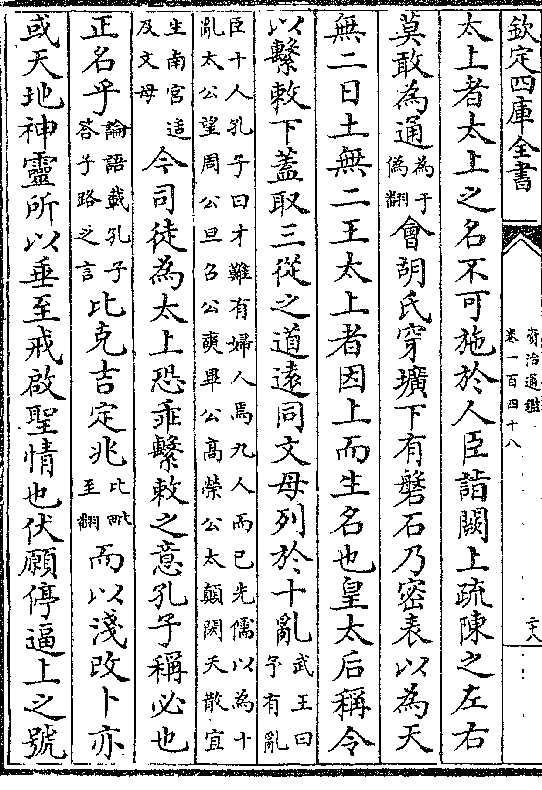 欽定四庫全書
資治通鑑
卷一百四十八
太上者太上之名不可施於人臣詣闕上疏陳之左右
莫敢為通為于偽翻會胡氏穿壙下有磐石乃密表以為天
無二日土無二王太上者因上而生名也皇太后稱令
以繫敕下蓋取三從之道遠同文母列於十亂武王曰予有亂
臣十人孔子曰才難有婦人焉九人而已先儒以為十
亂太公望周公旦召公奭畢公高榮公太顛閎夭散宜
生南宮适及文母今司徒為太上恐乖繫敕之意孔子稱必也
正名乎論語載孔子答子路之言比克吉定兆比毗至翻而以淺改卜亦
或天地神靈所以垂至戒啟聖情也伏願停逼上之號